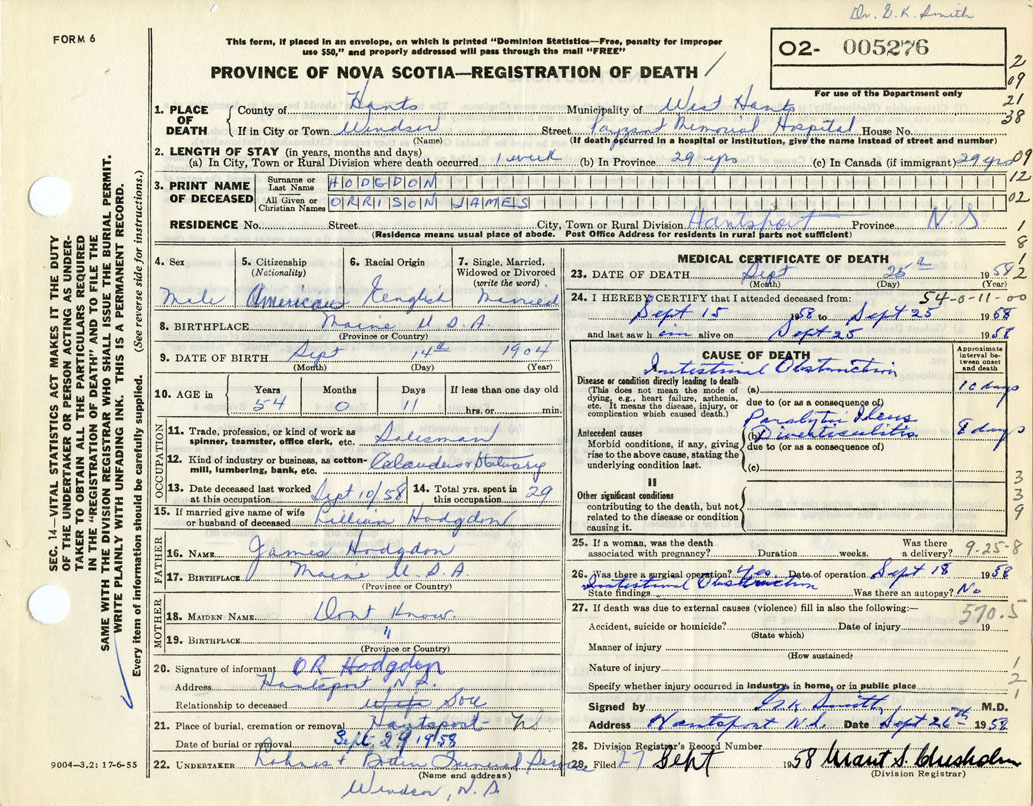 Dr. G. K. Smith
FORM 6
This form, if placed in an envelope, on which is printed "Dominion Statistics—Free, penalty for improper
use $50," and properly addressed will pass through the mail "FREE"
PROVINCE OF NOVA SCOTIA—REGISTRATION OF DEATH
02- 005276
For use of the Department only
1. PLACE OF DEATH
County of Hants Municipality of West Hants
If in City or Town Windsor Street Payzant Memorial Hospital House No.
(Name) (If death occurred in a hospital or institution, give the name instead of street and number)
2. LENGTH OF STAY (in years, months and days)
(a) In City, Town or Rural Division where death occurred 1 week (b) In Province 29 yrs (c) In Canada (if immigrant) 29 yrs
3. PRINT NAME OF DECEASED
Surname or Last Name HODGDON
All Given or Christian Names ORRISON JAMES
RESIDENCE No. Street City, Town or Rural Division Hantsport Province N.S
(Residence means usual place of abode. Post Office Address for residents in rural parts not sufficient)
2
09
21
38
09
12
02
1
8
1
2
SEC. 14—VITAL STATISTICS ACT MAKES IT THE DUTY
OF THE UNDERTAKER OR PERSON ACTING AS UNDER-
TAKER TO OBTAIN ALL THE PARTICULARS REQUIRED
IN THE "REGISTRATION OF DEATH" AND TO FILE THE
SAME WITH THE DIVISION REGISTRAR WHO SHALL ISSUE THE BURIAL PERMIT.
WRITE PLAINLY WITH UNFADING INK. THIS IS A PERMANENT RECORD.
Every item of information should be carefully supplied. (See reverse side for instructions.)
4. Sex
Male
5. Citizenship
(Nationality)
American
6. Racial Origin
English
7. Single, Married,
Widowed or Divorced
(write the word)
Married
8. BIRTHPLACE Maine U.S.A.
(Province or Country)
9. DATE OF BIRTH Sept 14th 1904
(Month) (Day) (Year)
10. AGE in Years Months Days If less than one day old
54 0 11 hrs. or min.
OCCUPATION
11. Trade, profession, or kind of work as
spinner, teamster, office clerk, etc. Salesman
12. Kind of industry or business, as cotton-
mill, lumbering, bank, etc.
13. Date deceased last worked
at this occupation Sept 10/58
14. Total yrs. spent in
this occupation 29
15. If married give name of wife
or husband of deceased Lillian Hodgdon
FATHER
16. NAME James Hodgdon
17. BIRTHPLACE Maine U.S.A.
(Province or Country)
MOTHER
18. MAIDEN NAME Dont Know.
19. BIRTHPLACE "
(Province or Country)
20. Signature of informant OR Hodgdon
Address Hantsport N.S.
Relationship to deceased Son
21. Place of burial, cremation or removal Hantsport N.S.
Date of burial or removal Sept 29 1958
22. UNDERTAKER Funeral Service
(Name and address)
Windsor, N.S.
9004—3.2: 17-6-55
MEDICAL CERTIFICATE OF DEATH
23. DATE OF DEATH Sept 25th 1958
(Month) (Day) (Year)
54-0-11-00
24. I HEREBY CERTIFY that I attended deceased from:
Sept 15 1958 to Sept 25 1958
and last saw him alive on Sept 25 1958
CAUSE OF DEATH
Approximate
interval be-
tween onset
and death
I
Intestinal Obstruction
Disease or condition directly leading to death
(This does not mean the mode of
dying, e.g., heart failure, asthenia,
etc. It means the disease, injury, or
complication which caused death.)
(a) 10 days
due to (or as a consequence of)
Paralytic Ileus
Antecedent causes
Morbid conditions, if any, giving
rise to the above cause, stating the
underlying condition last.
(b) Diverticulitis 8 days
due to (or as a consequence of)
(c)
II
Other significant conditions
contributing to the death, but not
related to the disease or condition
causing it.
3
3
9
25. If a woman, was the death Was there
associated with pregnancy? Duration weeks. a delivery?
9-25-8
26. Was there a surgical operation? Yes Date of operation Sept 18 1958
Intestinal Obstruction
State findings Was there an autopsy? No
27. If death was due to external causes (violence) fill in also the following:—
570.5
Accident, suicide or homicide? Date of injury 19
(State which)
Manner of injury
(How sustained)
Nature of injury
Specify whether injury occurred in industry, in home, or in public place
1
2
1
Signed by G.K. Smith M.D.
Address Hantsport N.S. Date Sept 26th 1958
28. Division Registrar's Record Number
29. Filed 27 Sept 1958 Grant S. Chisholm
(Division Registrar)